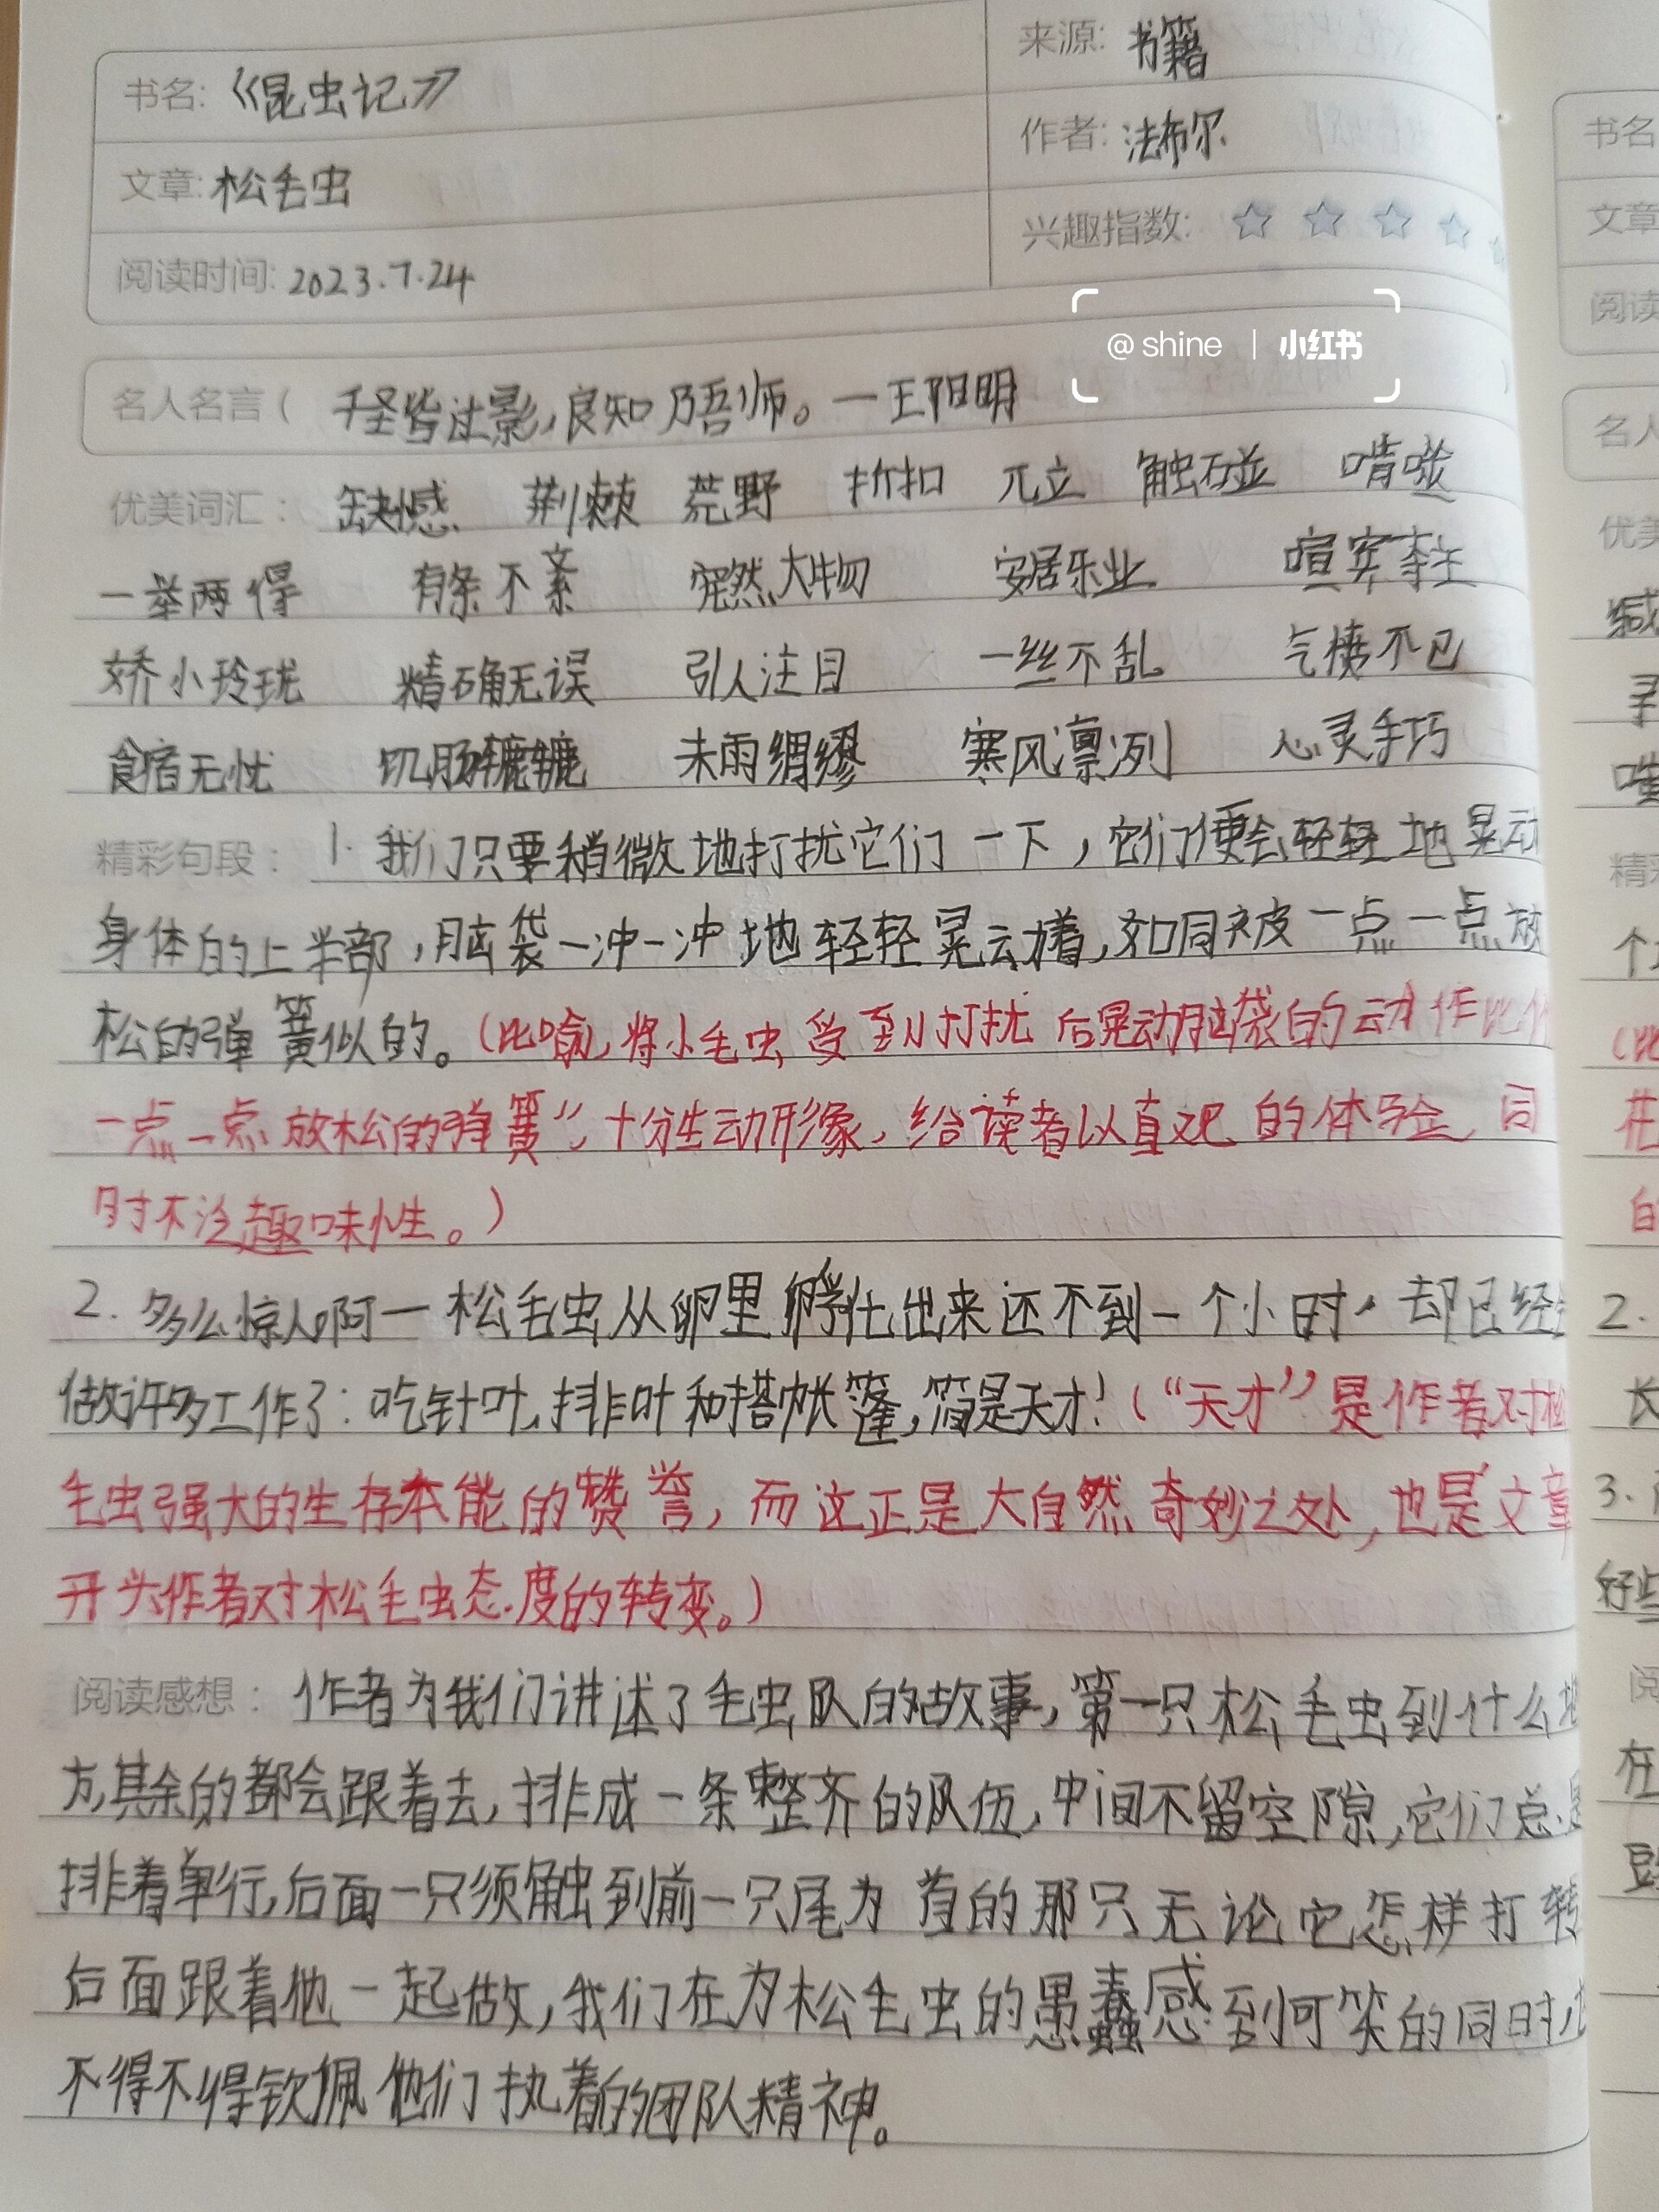 书名: 《昆虫记》
来源: 书籍
文章: 松毛虫
作者: 法布尔
阅读时间: 2023.7.24
兴趣指数: ☆ ☆ ☆ ☆
@shine | 小红书
名人名言( 千圣皆过影,良知乃吾师。—王阳明
优美词汇: 缺憾 荆棘 荒野 折扣 兀立 触碰 啃噬
一举两得 有条不紊 突然大物 安居乐业 喧宾夺主
娇小玲珑 精确无误 引人注目 一丝不乱 气愤不已
食宿无忧 饥肠辘辘 未雨绸缪 寒风凛冽 心灵手巧
精彩句段: 1.我们只要稍微地打扰它们一下,它们便会轻轻地晃动
身体的上半部,脑袋一冲一冲地轻轻晃动着,如同被一点一点放
松的弹簧似的。(比喻,将小毛虫受到打扰后晃动脑袋的动作比作
一点一点放松的弹簧",十分生动形象,给读者以直观的体验,同
时不泛趣味性。)
2.多么惊人啊一松毛虫从卵里孵化出来还不到一个小时,却已经
做许多工作了:吃针叶,排叶和搭帐篷,简是天才!("天才"是作者对松
毛虫强大的生存本能的赞誉,而这正是大自然奇妙之处,也是文章
开头作者对松毛虫态度的转变。)
阅读感想: 作者为我们讲述了毛虫队的故事,第一只松毛虫到什么地
方,其余的都会跟着去,排成一条整齐的队伍,中间不留空隙,它们总是
排着单行,后面一只须触到前一只尾为首的那只无论它怎样打转
后面跟着他一起做,我们在为松毛虫的愚蠢感到可笑的同时,也
不得不得钦佩他们执着的团队精神。
书名
文章
阅读
名人
优美
精彩
个
2.
长
3.
好些
阅
在